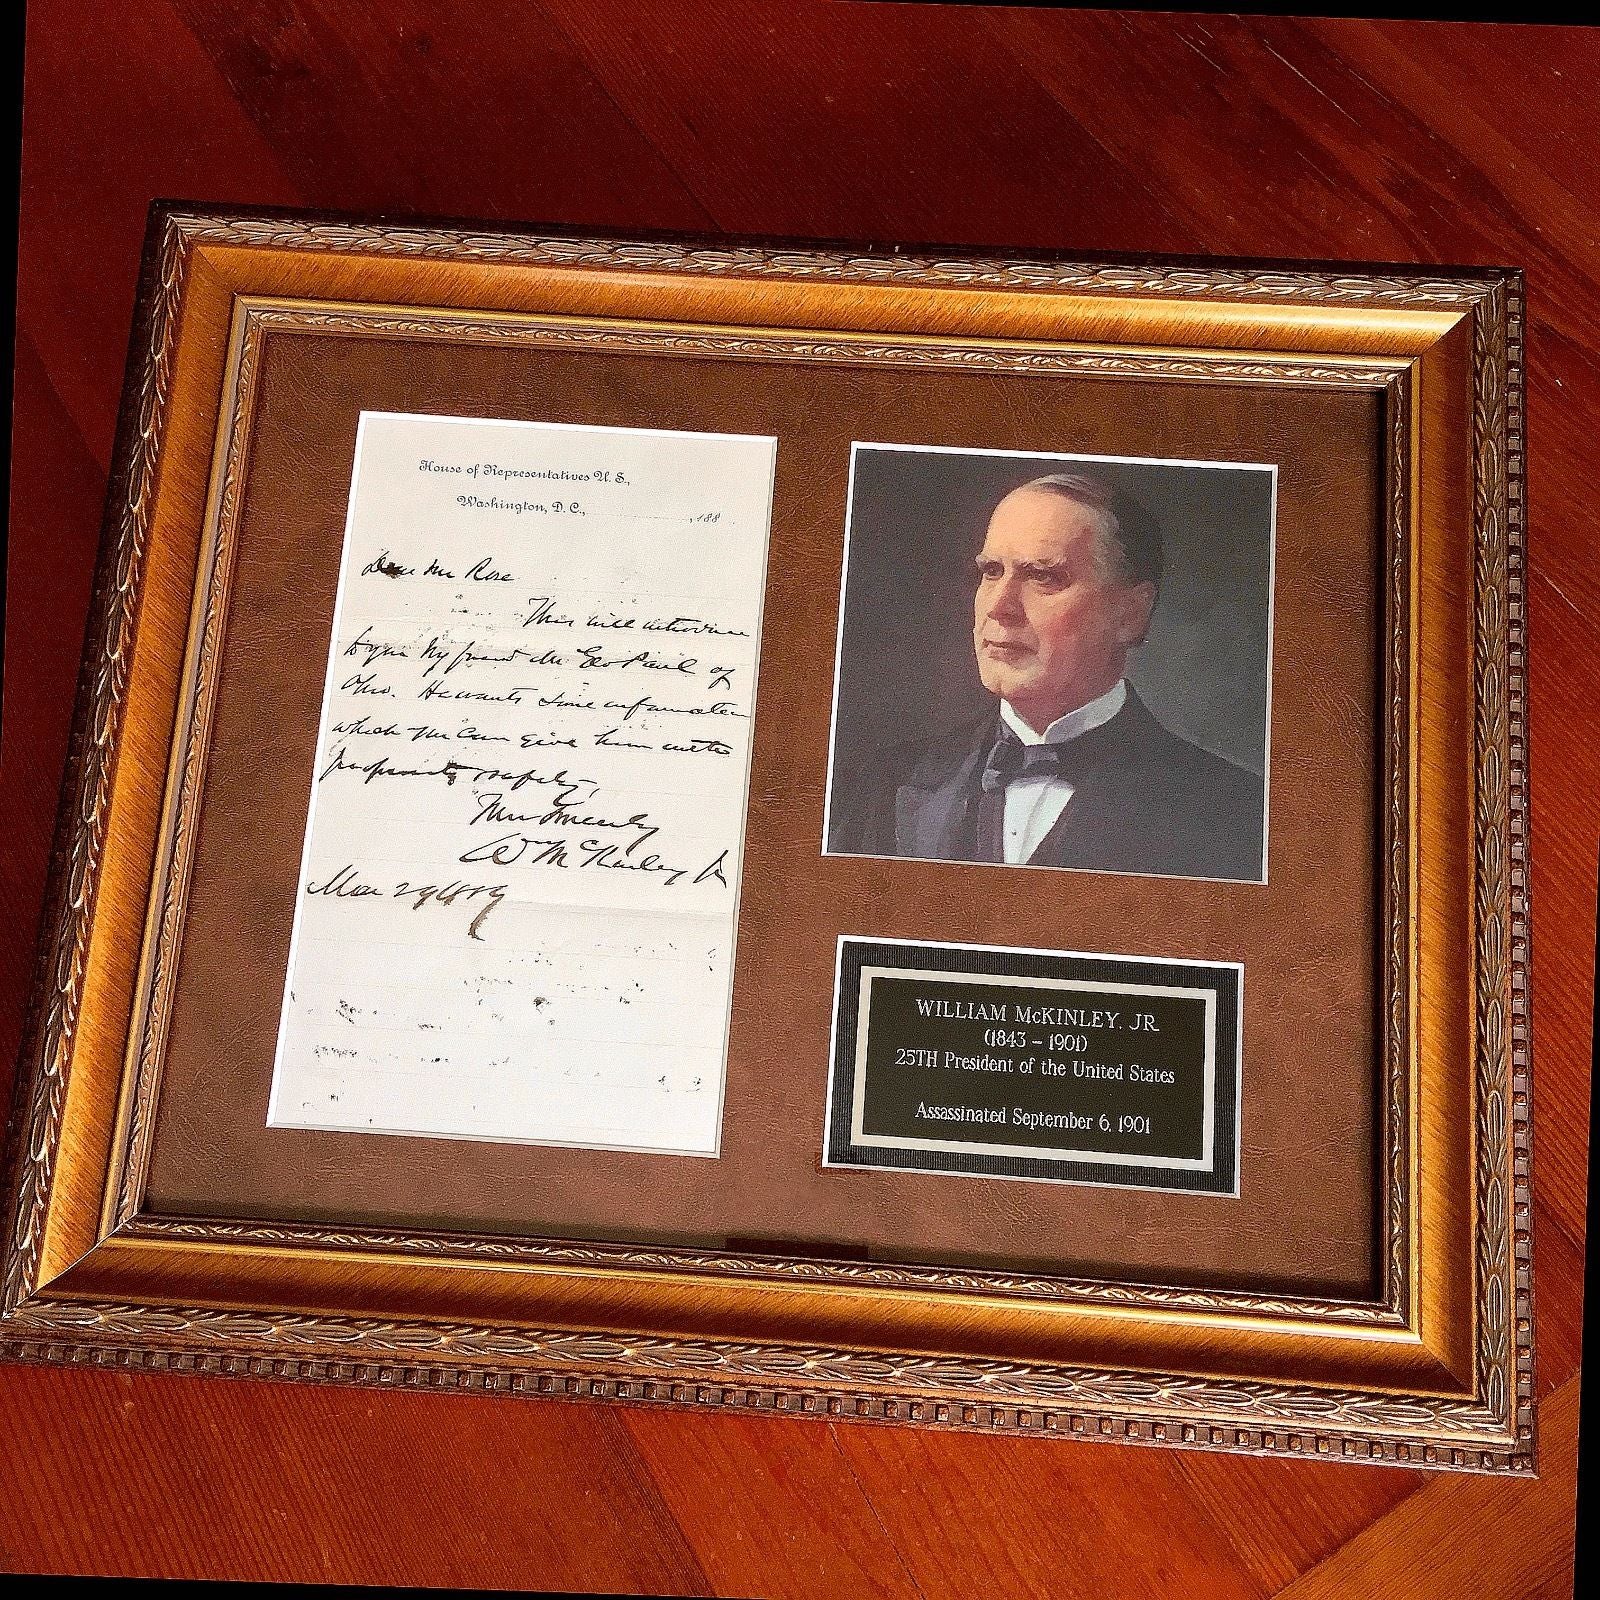 House of Representatives U. S.,
Washington, D. C., , 188
Dear Mr Rose
This will introduce
to you my friend Mr Geo Paul of
Ohio. He wants some information
which you can give him with
propriety & safety,
Yours Sincerely
Wm McKinley Jr
Mar 29 1889
WILLIAM McKINLEY, JR.
(1843 – 1901)
25TH President of the United States
Assassinated September 6, 1901